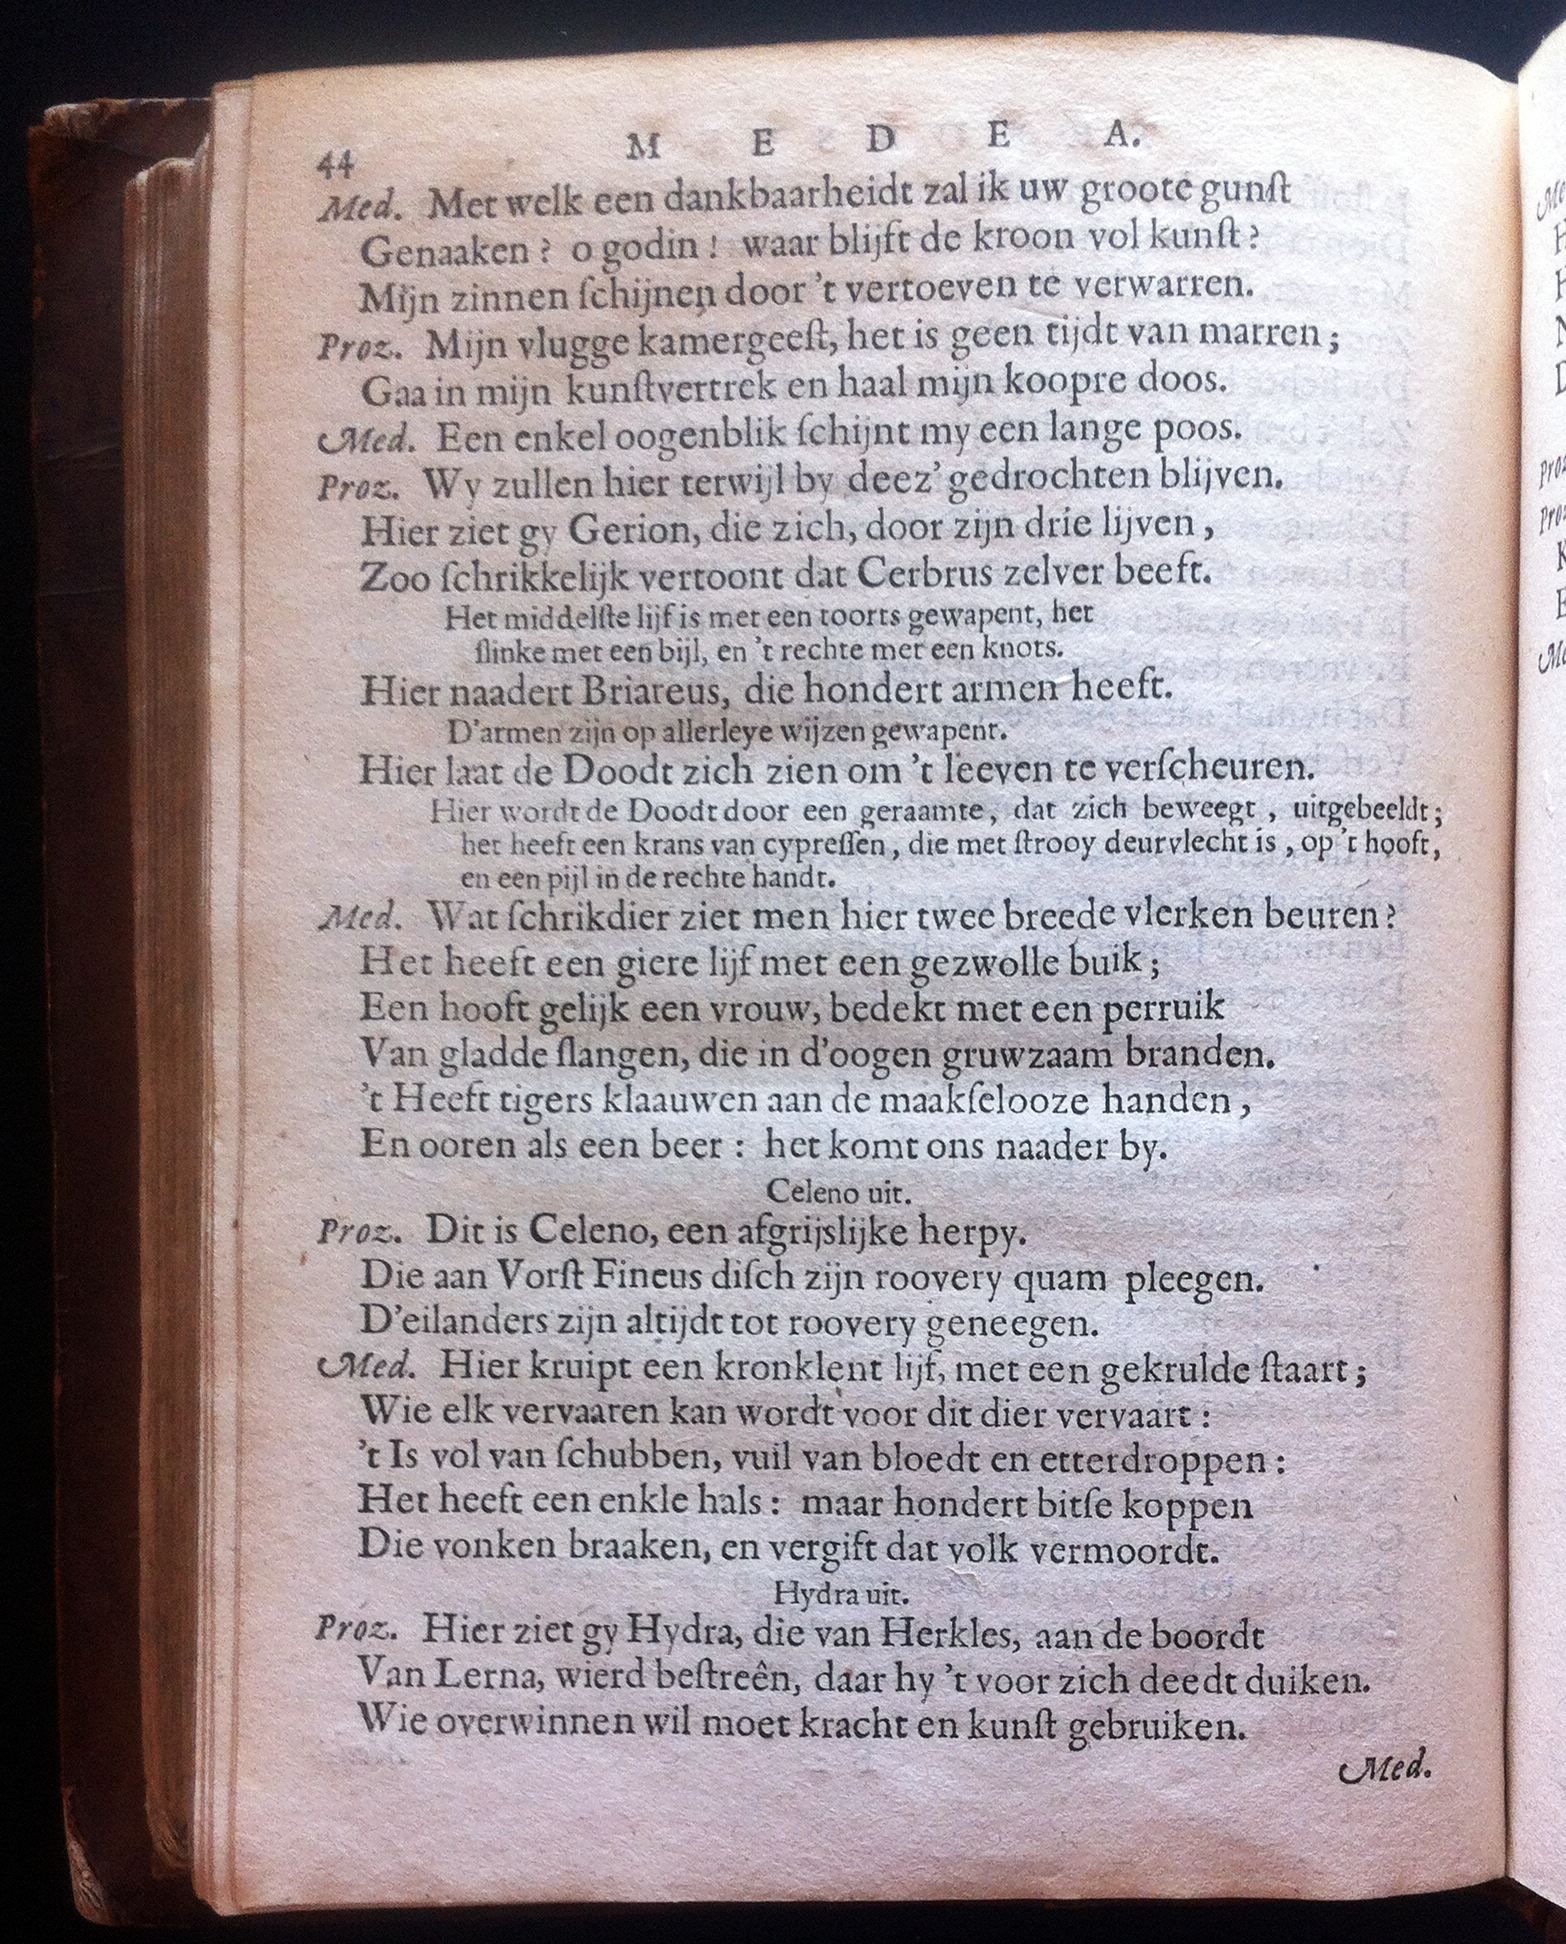 44
M E D E A.
Med. Met welk een dankbaarheidt zal ik uw groote gunſt
Genaaken? o godin! waar blijft de kroon vol kunſt?
Mijn zinnen ſchijnen door 't vertoeven te verwarren.
Proz. Mijn vlugge kamergeeſt, het is geen tijdt van marren;
Gaa in mijn kunſtvertrek en haal mijn koopre doos.
Med. Een enkel oogenblik ſchijnt my een lange poos.
Proz. Wy zullen hier terwijl by deez' gedrochten blijven.
Hier ziet gy Gerion, die zich, door zijn drie lijven,
Zoo ſchrikkelijk vertoont dat Cerbrus zelver beeft.
Het middelſte lijf is met een toorts gewapent, het
ſlinke met een bijl, en 't rechte met een knots.
Hier naadert Briareus, die hondert armen heeft.
D'armen zijn op allerleye wijzen gewapent.
Hier laat de Doodt zich zien om 't leeven te verſcheuren.
Hier wordt de Doodt door een geraamte, dat zich beweegt, uitgebeeldt;
het heeft een krans van cypreſſen, die met ſtrooy deurvlecht is, op 't hooft,
en een pijl in de rechte handt.
Med. Wat ſchrikdier ziet men hier twee breede vlerken beuren?
Het heeft een giere lijf met een gezwolle buik;
Een hooft gelijk een vrouw, bedekt met een perruik
Van gladde ſlangen, die in d'oogen gruwzaam branden.
't Heeft tigers klaauwen aan de maakſelooze handen,
En ooren als een beer: het komt ons naader by.
Celeno uit.
Proz. Dit is Celeno, een afgrijslijke herpy.
Die aan Vorſt Fineus diſch zijn roovery quam pleegen.
D'eilanders zijn altijdt tot roovery geneegen.
Med. Hier kruipt een kronklent lijf, met een gekrulde ſtaart;
Wie elk vervaaren kan wordt voor dit dier vervaart:
't Is vol van ſchubben, vuil van bloedt en etterdroppen:
Het heeft een enkle hals: maar hondert bitſe koppen
Die vonken braaken, en vergift dat volk vermoordt.
Hydra uit.
Proz. Hier ziet gy Hydra, die van Herkles, aan de boordt
Van Lerna, wierd beſtreên, daar hy 't voor zich deedt duiken.
Wie overwinnen wil moet kracht en kunſt gebruiken.
Med.